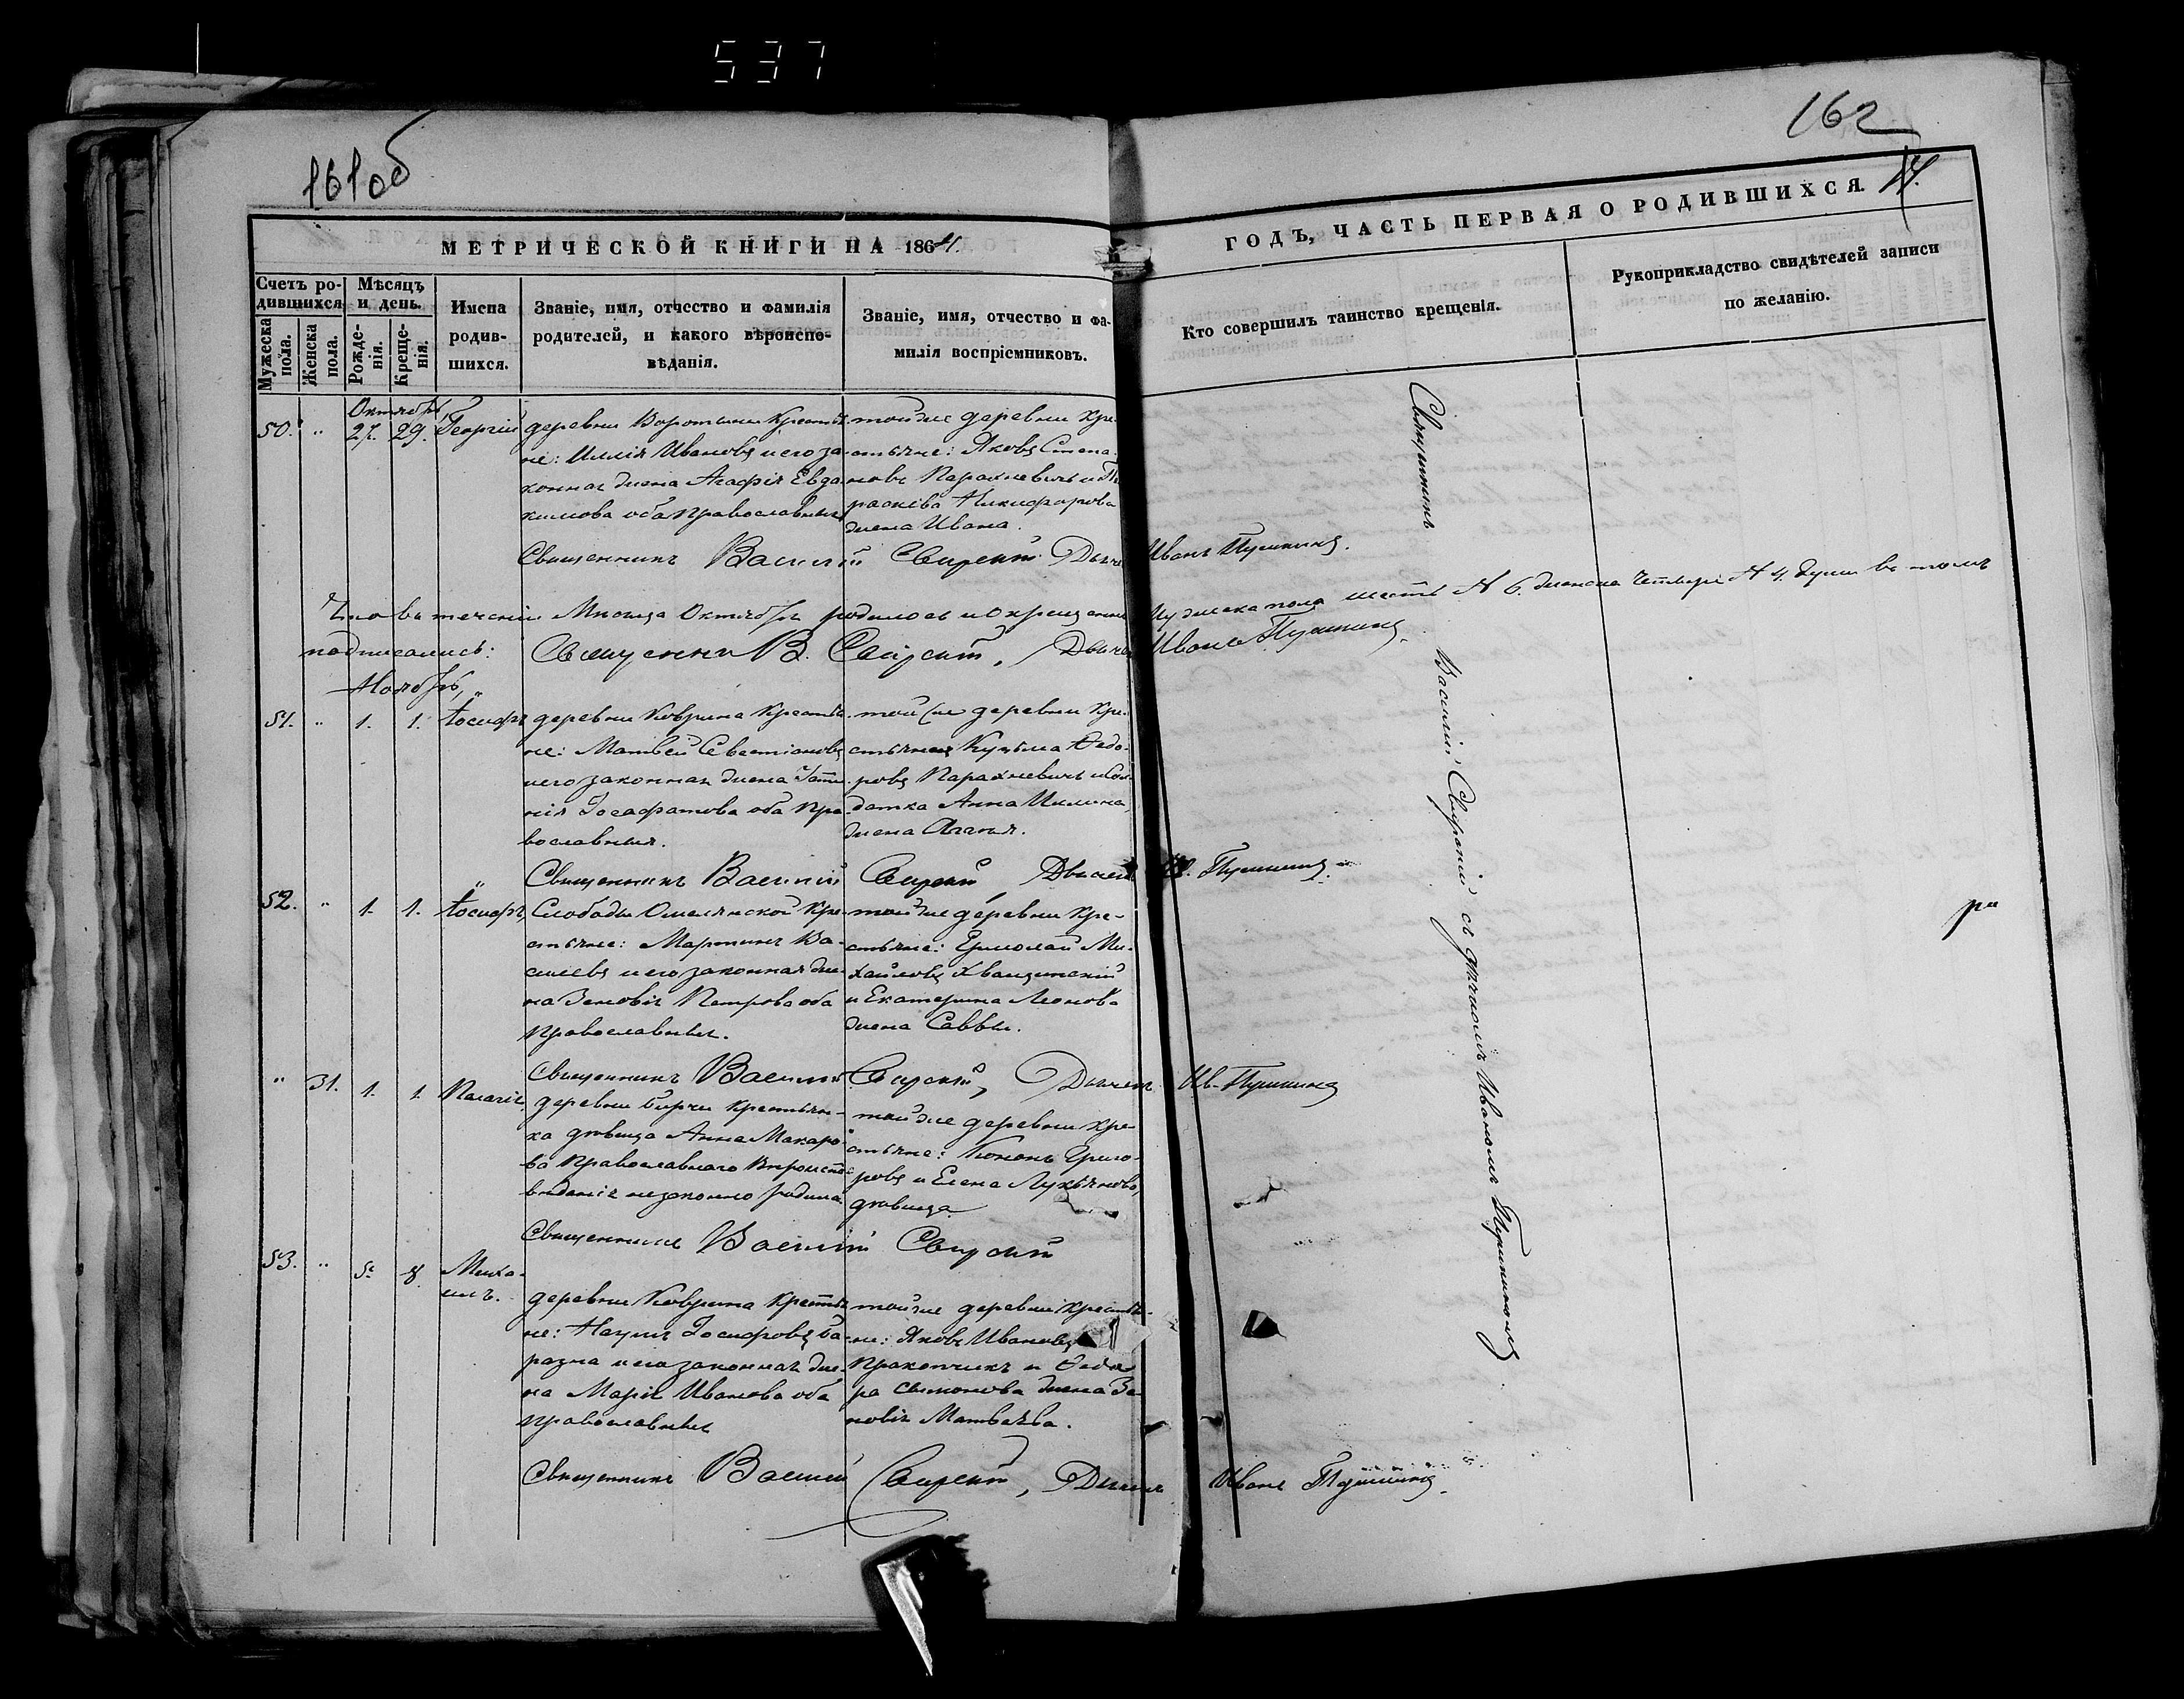 537
161об
162
14.
МЕТРИЧЕСКОЙ КНИГИ НА 1864.
ГОДЪ, ЧАСТЬ ПЕРВАЯ О РОДИВШИХСЯ.
Счетъ ро-
дившихся
Мужеска
пола.
Женска
пола.
Мѣсяцъ
и день.
Рожде-
нія.
Креще-
нія.
Имена
родив-
шихся.
Званіе, имя, отчество и фамилія
родителей, и какого вѣроиспо-
вѣданія.
Званіе, имя, отчество и фа-
милія воспріемниковъ.
Кто совершилъ таинство крещенія.
Рукоприкладство свидѣтелей записи
по желанію.
Октябрь,
50. " 27. 29. Георгій
деревни Воротыни Крестья
не: Иллія Ивановъ и его за-
конная жена Агафія Евдо
кимова оба Православныя
тойже деревни Кре
стьяне: Яковъ Степа
новъ Парахневичъ и
Никифорова
жена Ивана.
Священникъ Василій Иванъ
Что въ теченіи Мѣсяца Октября родилось и окрещенно Мужеска пола шесть № 6. женска Четыре № 4. душъ въ томъ
подписались:
Священникъ В. Иванъ
Ноябрь,
51. " 1. 1. Іосифъ
деревни Коврина Крестья
не: Матвей Севастіановъ
и его законная жена
Іосафатова оба Пра
вославныя.
тойже деревни Кре
Кузьма Ѳедо-
ровъ Парахневичъ
датка Анна
жена
Священникъ Василій Ив.
52. " 1. 1. Іосифъ
Слободы Омелянской Кре-
стьяне: Мартинъ Ва-
силевъ и его законная же-
на Зеновія Петрова оба
Православныя.
тойже деревни Кре-
стьяне: Ермолай Ми-
хайловъ
и Екатерина Леонова
жена Саввы.
Священникъ Василій Ив.
" 31. 1. 1. Пелагія
деревни Бирчи крестьян-
ка дѣвица Анна Макаро-
ва Православнаго Вѣроиспо
вѣданія незаконно родила
тойже деревни кре
стьяне: Кононъ Григо-
ровъ и Елена Лукьянова
дѣвица
Священникъ Василій
53. " 5. 8. Миха-
илъ.
деревни Коврина Крестья
не: Наумъ Іосифовъ Ба-
разна и его законная же-
на Марія Иванова оба
Православныя
тойже деревни Крестья-
не: Яковъ Ивановъ
Прокопчикъ и Ѳедо
ра Симонова жена За-
новія Матвѣева.
Священникъ Василій Иванъ
Священникъ
Василій съ дьячкомъ Иваномъ